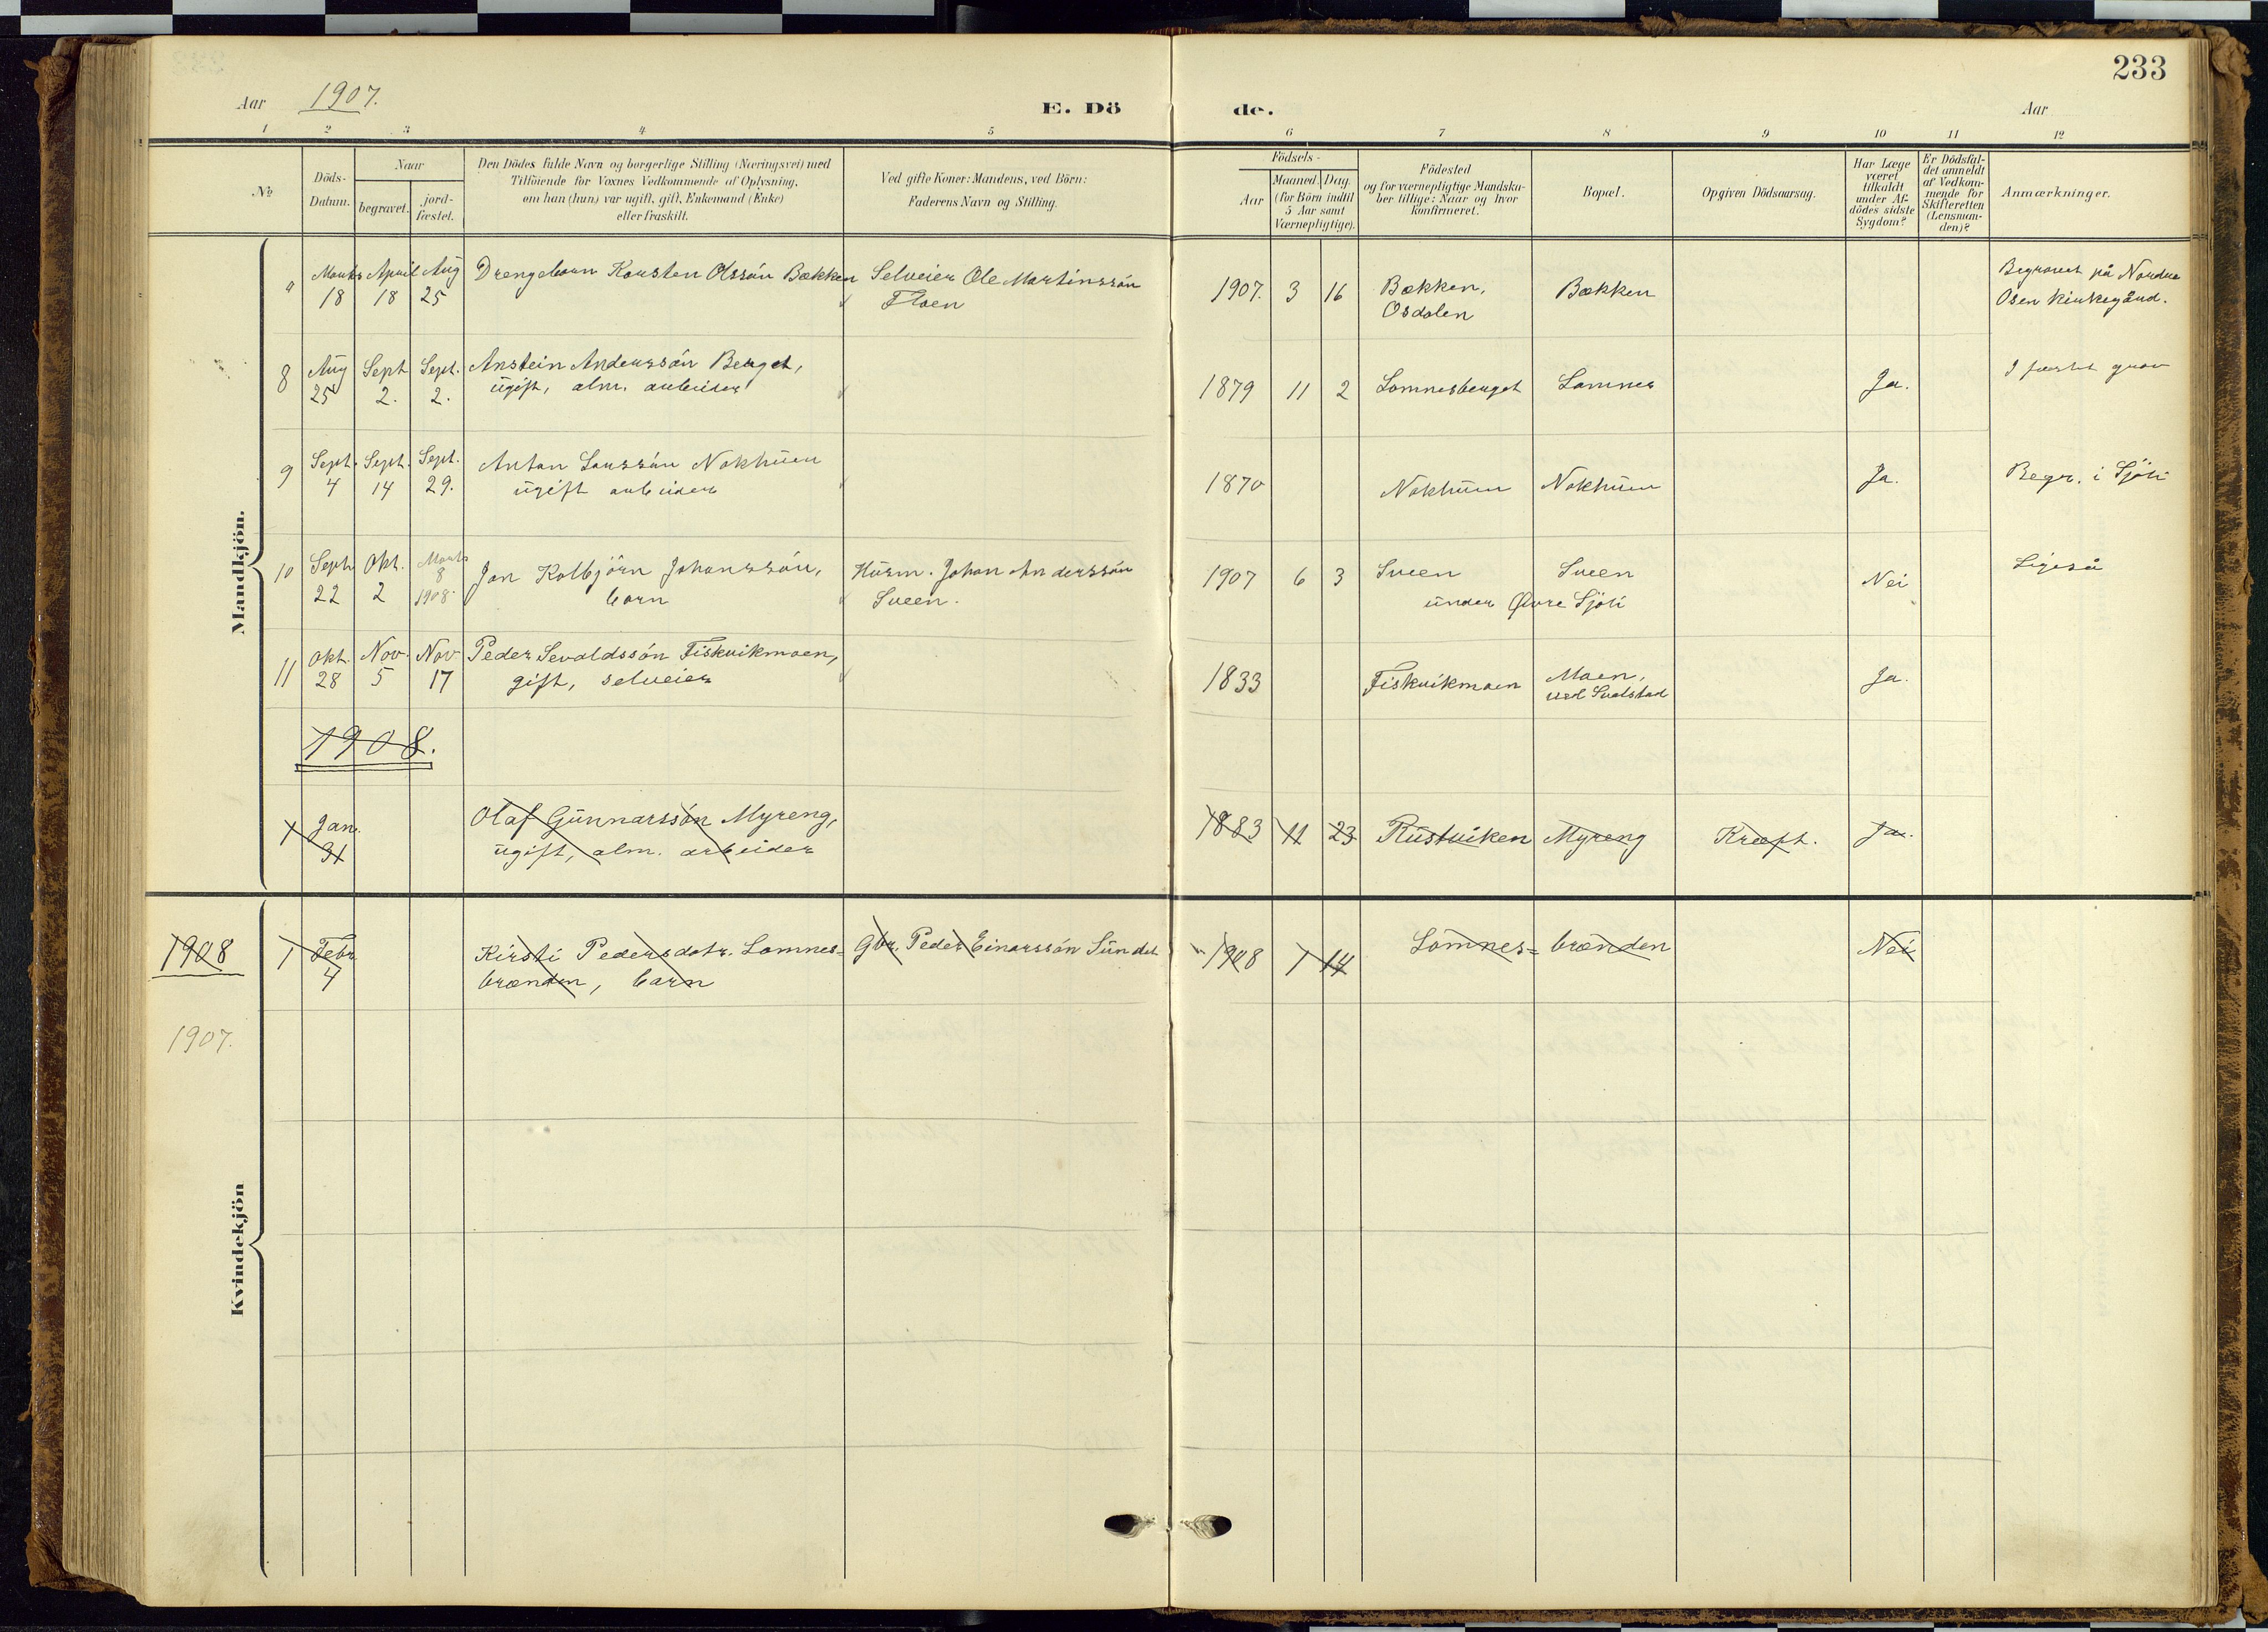 233
Aar 1907.
E. Dö de.
Aar
1 2 3 4 5 6 7 8 9 10 11 12
No
Döds-
Datum.
Naar
begravet.
jord-
fæstet.
Den Dödes fulde Navn og borgerlige Stilling (Næringsvei) med
Tilföiende for Voxnes Vedkommende af Oplysning,
om han (hun) var ugift, gift, Enkemand (Enke)
eller fraskilt.
Ved gifte Koner: Mandens, ved Börn:
Faderens Navn og Stilling.
Födsels-
Aar
Maaned. Dag.
(for Börn indtil
5 Aar samt
Værnepligtige).
Födested
og for værnepligtige Mandska-
ber tillige: Naar og hvor
konfirmeret.
Bopæl.
Opgiven Dödsaarsag.
Har Læge
været
tilkaldt
under Af-
dödes sidste
Sygdom?
Er Dödsfal-
det anmeldt
af Vedkom-
mende for
Skifteretten
(Lensman-
den)?
Anmærkninger.
Mandkjön.
Marts April Aug Drengebarn Karsten Olssön Bækken Selveier Ole Martinssön
18 18 25 Floen
1907. 3 16 Bækken, Bækken
Osdalen
Begravet på Nordre
Osen kirkegård.
8 Aug Sept Sept. Anstein Anderssön Berget,
25 2. 2. ugift, alm. arbeider
1879 11 2 Lomnesberget Lomnes Ja. I fæstet grav
9 Sept. Sept. Sept. Anton Larssön Nokhuen
4 14 29. ugift arbeider
1870 Nokhuen Nokhuen Ja. Begr. i Sjöli
10 Sept. Okt. Marts Jon Kolbjörn Johanssön, Husm. Johan Anderssön
22 2 8 1908 barn Sveen.
1907 6 3 Sveen Sveen Nei Ligeså
under Øvre Sjöli
11 Okt. Nov. Nov Peder Sevaldssön Fiskvikmoen,
28 5 17 gift, selveier
1833 Fiskvikmoen Moen, Ja.
ved Svalstad
1908.
1 Jan. Olaf Gunnarssön Myreng,
31 ugift, alm. arbeider
1883 11 23 Rustviken Myreng Kræft. Ja.
Kvindekjön
1908 1 Febr Kirsti Pedersdotr. Lomnes= Gbr. Peder Einarssön Sundet
4 brænden, barn
1908 1 14 Lomnes= brænden Nei
1907.